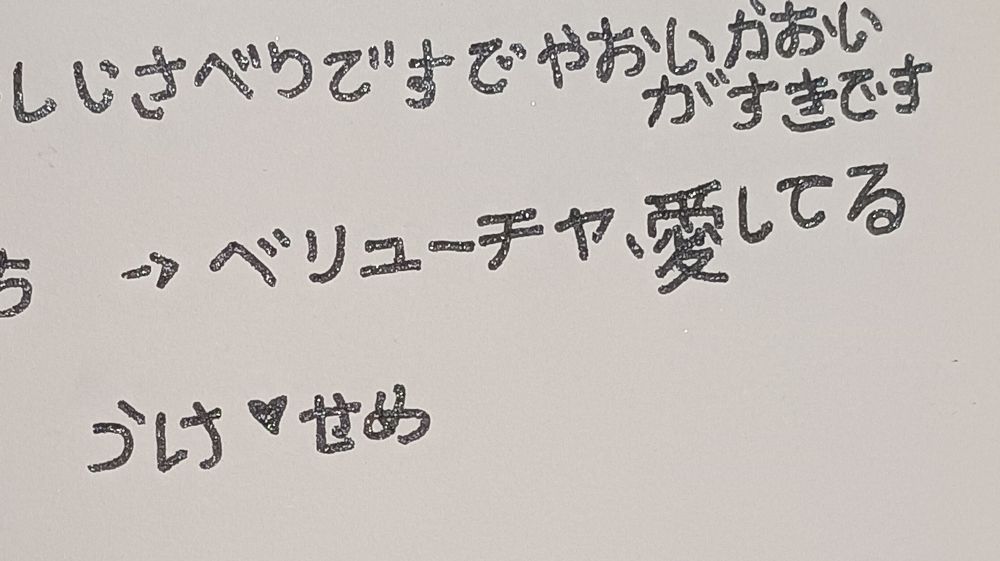 しじさべりですでやおいかおい
がすきです
ち → ベリューチャ、愛してる
うけ♥せめ